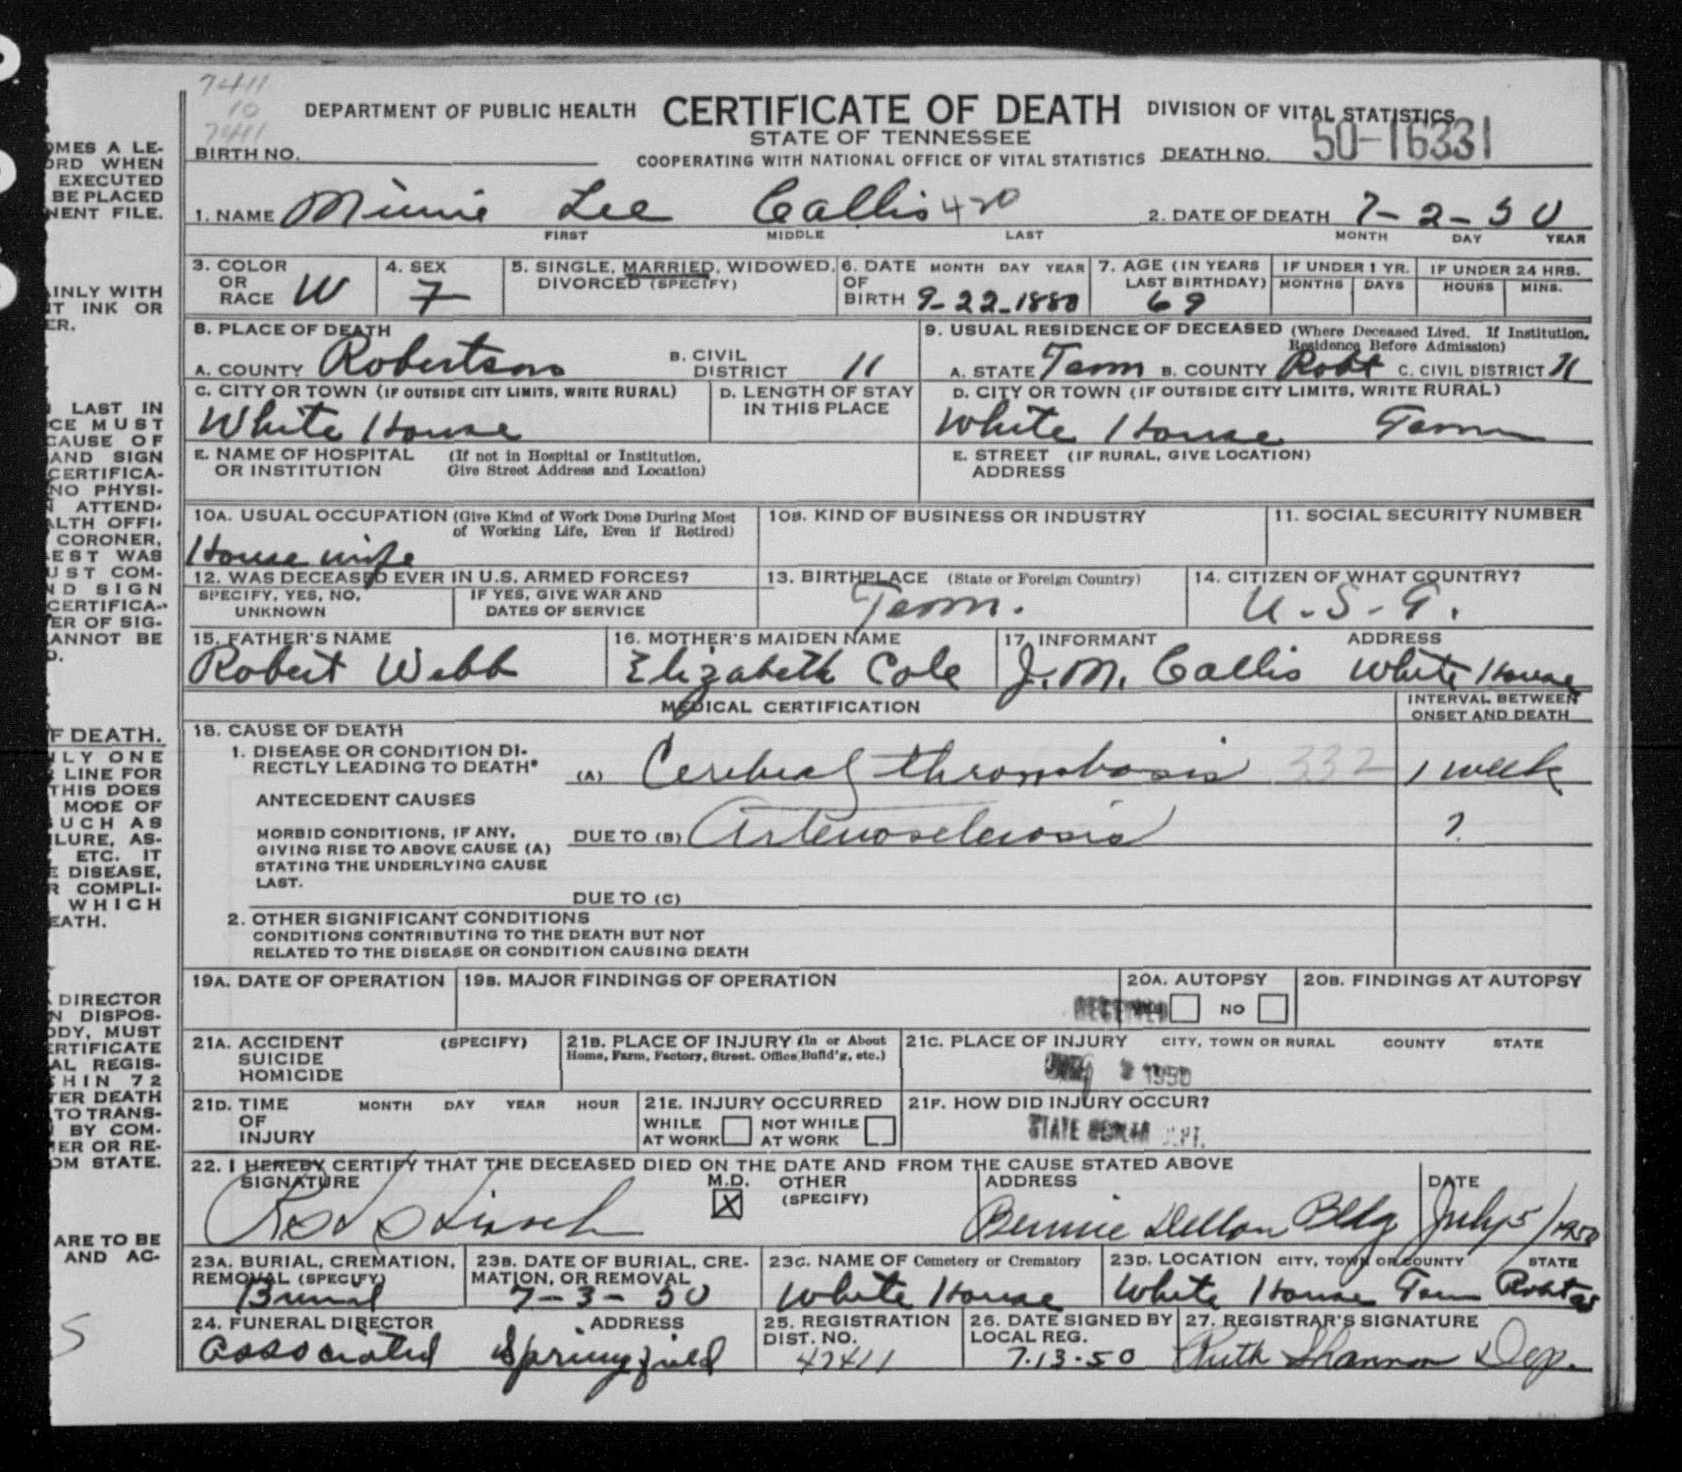 7411
10
7411
DEPARTMENT OF PUBLIC HEALTH CERTIFICATE OF DEATH DIVISION OF VITAL STATISTICS
STATE OF TENNESSEE
BIRTH NO. COOPERATING WITH NATIONAL OFFICE OF VITAL STATISTICS DEATH NO. 50-16331
1. NAME Minnie Lee Callis 420 2. DATE OF DEATH 7-2-50
FIRST MIDDLE LAST MONTH DAY YEAR
3. COLOR OR RACE W
4. SEX F
5. SINGLE, MARRIED, WIDOWED, DIVORCED (SPECIFY)
6. DATE OF BIRTH MONTH DAY YEAR 9-22-1880
7. AGE (IN YEARS LAST BIRTHDAY) 69
IF UNDER 1 YR. MONTHS DAYS
IF UNDER 24 HRS. HOURS MINS.
8. PLACE OF DEATH
A. COUNTY Robertson B. CIVIL DISTRICT 11
9. USUAL RESIDENCE OF DECEASED (Where Deceased Lived. If Institution, Residence Before Admission)
A. STATE Tenn B. COUNTY Robt C. CIVIL DISTRICT 11
C. CITY OR TOWN (IF OUTSIDE CITY LIMITS, WRITE RURAL)
White House
D. LENGTH OF STAY IN THIS PLACE
D. CITY OR TOWN (IF OUTSIDE CITY LIMITS, WRITE RURAL)
White House Tenn
E. NAME OF HOSPITAL OR INSTITUTION (If not in Hospital or Institution, Give Street Address and Location)
E. STREET ADDRESS (IF RURAL, GIVE LOCATION)
10A. USUAL OCCUPATION (Give Kind of Work Done During Most of Working Life, Even if Retired)
House wife
10B. KIND OF BUSINESS OR INDUSTRY
11. SOCIAL SECURITY NUMBER
12. WAS DECEASED EVER IN U.S. ARMED FORCES?
SPECIFY, YES, NO, UNKNOWN
IF YES, GIVE WAR AND DATES OF SERVICE
13. BIRTHPLACE (State or Foreign Country)
Tenn.
14. CITIZEN OF WHAT COUNTRY?
U.S.A.
15. FATHER'S NAME
Robert Webb
16. MOTHER'S MAIDEN NAME
Elizabeth Cole
17. INFORMANT ADDRESS
J. M. Callis White House
MEDICAL CERTIFICATION
INTERVAL BETWEEN ONSET AND DEATH
18. CAUSE OF DEATH
1. DISEASE OR CONDITION DIRECTLY LEADING TO DEATH* (A) Cerebral thrombosis 332 1 week
ANTECEDENT CAUSES
MORBID CONDITIONS, IF ANY, GIVING RISE TO ABOVE CAUSE (A) STATING THE UNDERLYING CAUSE LAST.
DUE TO (B) Arteriosclerosis ?
DUE TO (C)
2. OTHER SIGNIFICANT CONDITIONS
CONDITIONS CONTRIBUTING TO THE DEATH BUT NOT
RELATED TO THE DISEASE OR CONDITION CAUSING DEATH
19A. DATE OF OPERATION
19B. MAJOR FINDINGS OF OPERATION
20A. AUTOPSY
RECEIVED NO
20B. FINDINGS AT AUTOPSY
21A. ACCIDENT SUICIDE HOMICIDE (SPECIFY)
21B. PLACE OF INJURY (In or About Home, Farm, Factory, Street, Office Build'g, etc.)
21C. PLACE OF INJURY CITY, TOWN OR RURAL COUNTY STATE
1950
21D. TIME OF INJURY MONTH DAY YEAR HOUR
21E. INJURY OCCURRED
WHILE AT WORK NOT WHILE AT WORK
21F. HOW DID INJURY OCCUR?
STATE HEALTH DEPT.
22. I HEREBY CERTIFY THAT THE DECEASED DIED ON THE DATE AND FROM THE CAUSE STATED ABOVE
SIGNATURE M.D. X OTHER (SPECIFY) ADDRESS DATE
Bennie Dillon Bldg July 5/1950
23A. BURIAL, CREMATION, REMOVAL (SPECIFY)
Burial
23B. DATE OF BURIAL, CREMATION, OR REMOVAL
7-3-50
23C. NAME OF Cemetery or Crematory
White House
23D. LOCATION CITY, TOWN OR COUNTY STATE
White House Tenn
24. FUNERAL DIRECTOR ADDRESS
Associated Springfield
25. REGISTRATION DIST. NO.
47411
26. DATE SIGNED BY LOCAL REG.
7.13.50
27. REGISTRAR'S SIGNATURE
Ruth Shannon Dep.